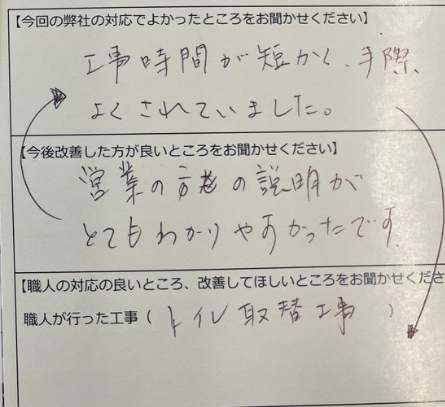 【今回の弊社の対応でよかったところをお聞かせください】
工事時間が短かく、手際
よくされていました。
【今後改善した方が良いところをお聞かせください】
営業の方の説明が
とてもわかりやすかったです。
【職人の対応の良いところ、改善してほしいところをお聞かせくださ
職人が行った工事（トイレ取替工事）